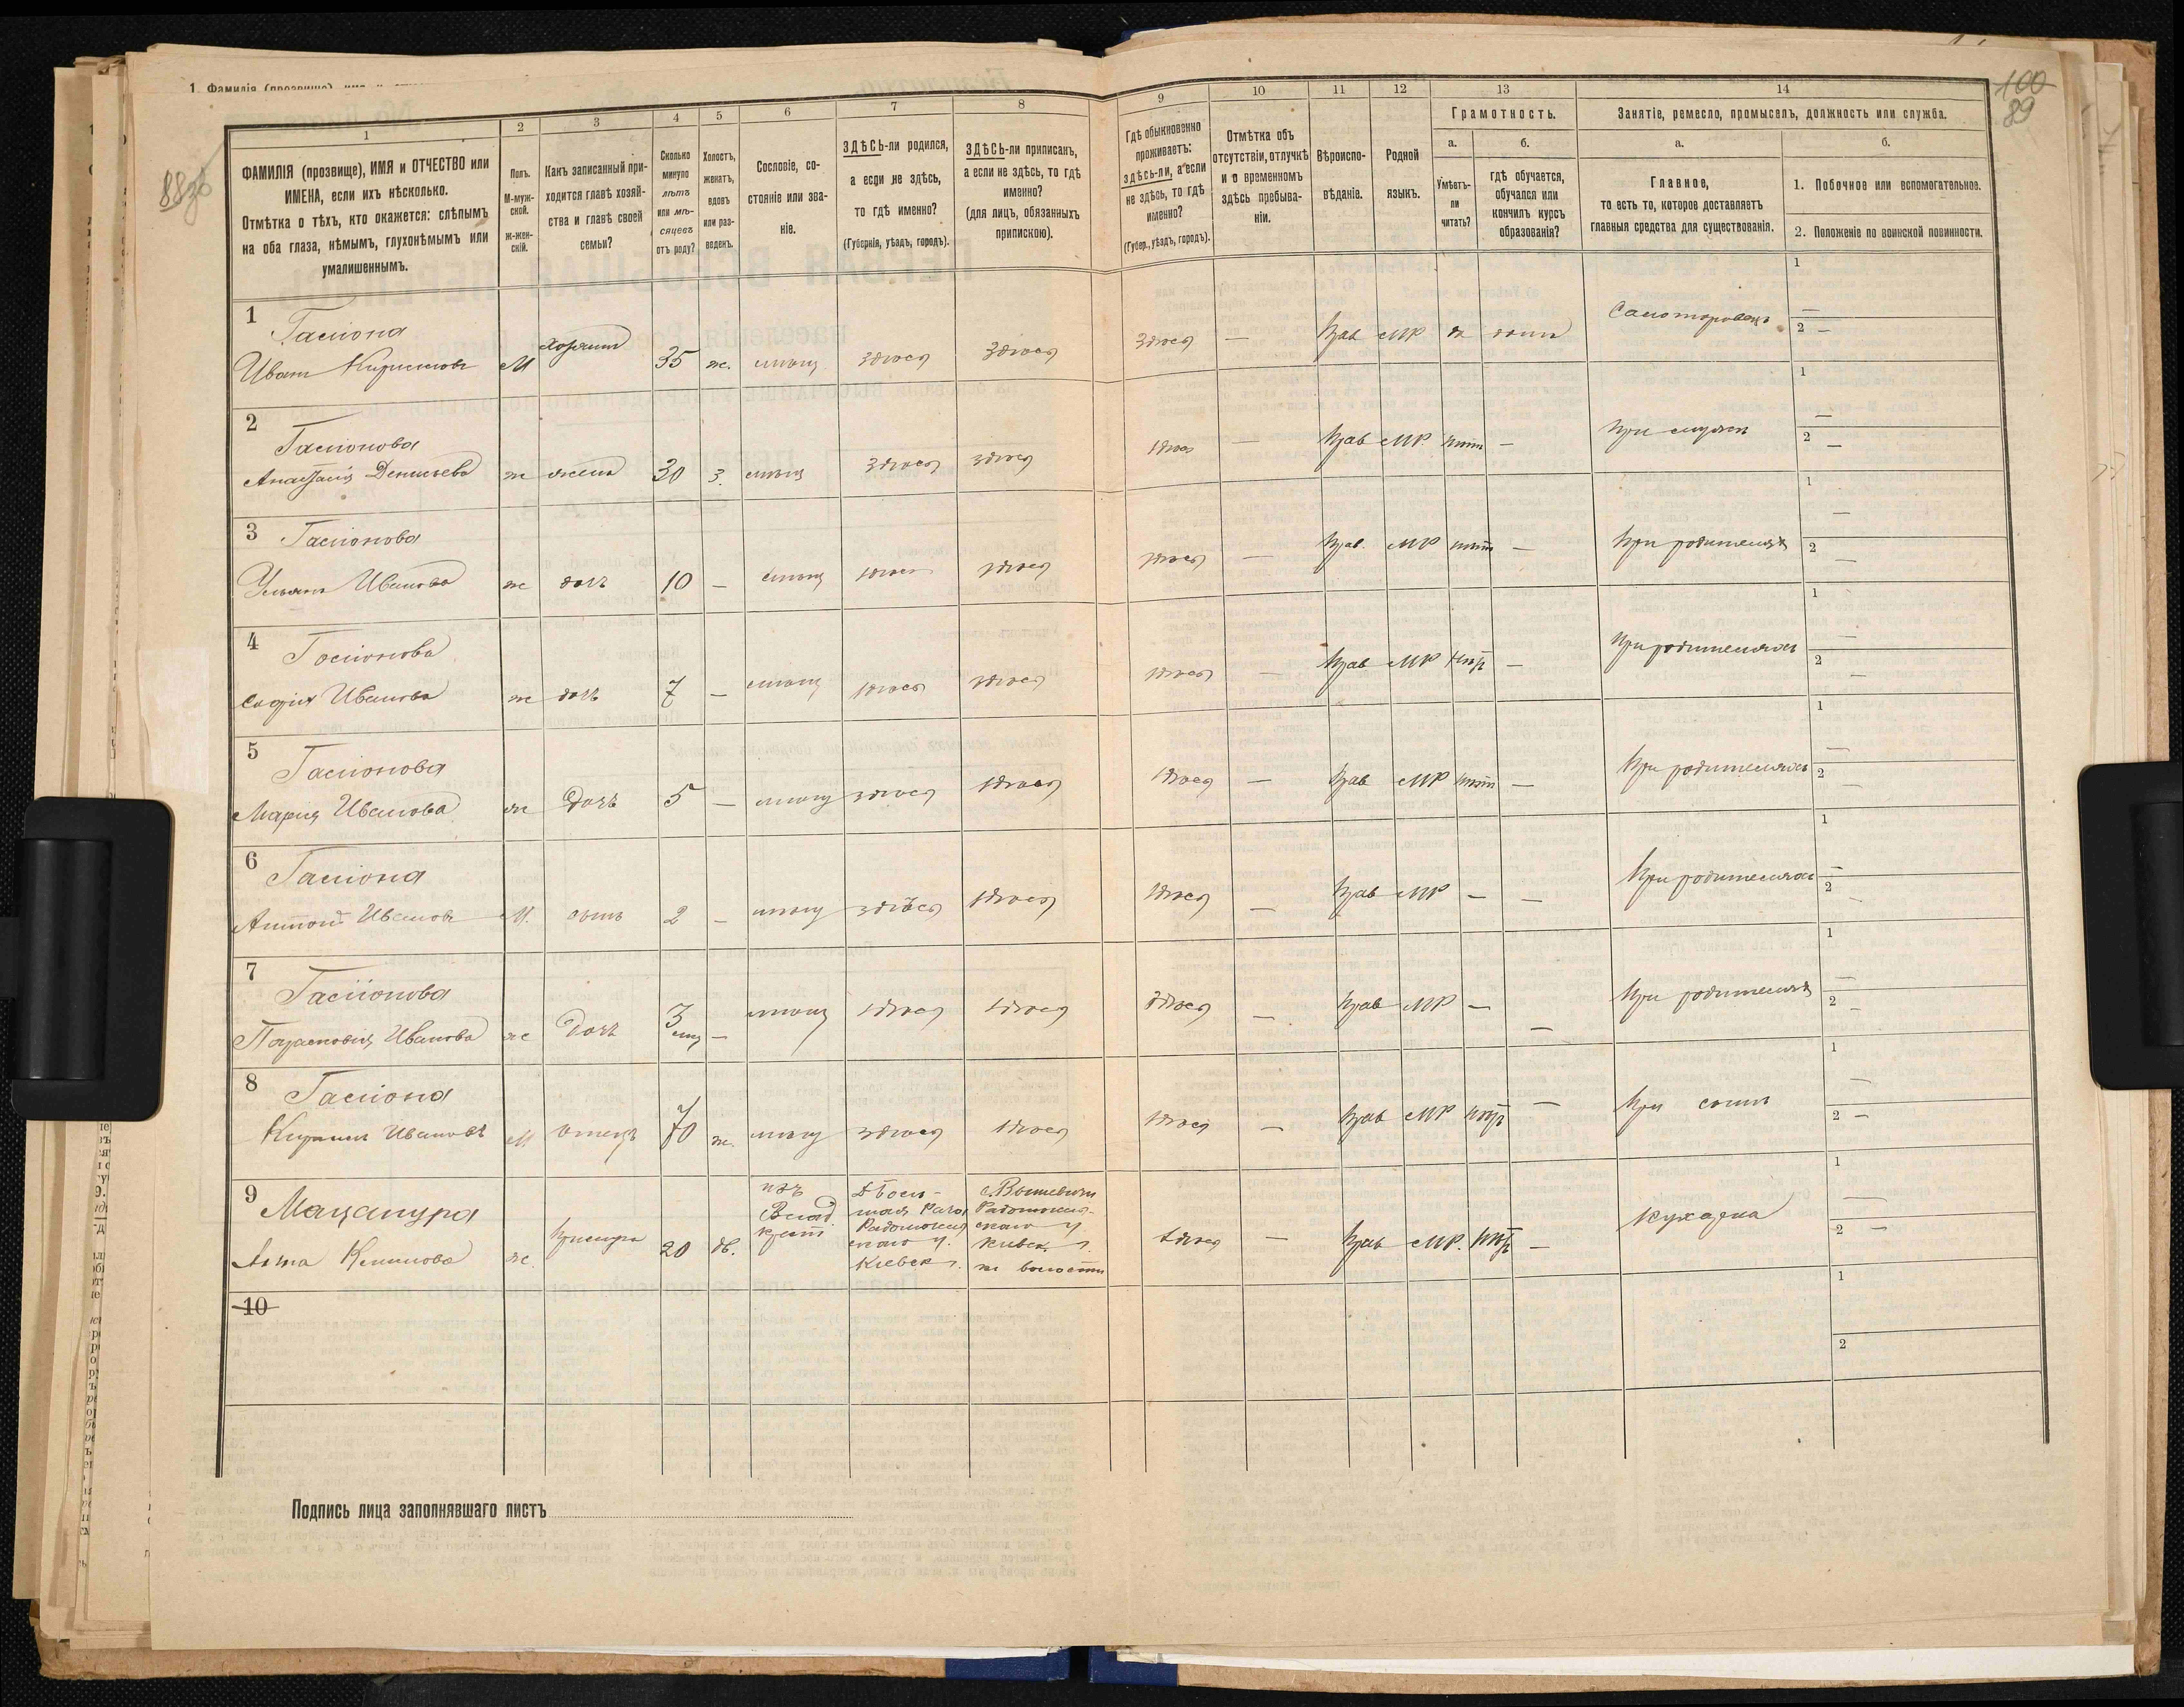 1. Фамилія (прозвище)
100
89
88зв
1
2
3
4
5
6
7
8
9
10
11
12
13
14
ФАМИЛІЯ (прозвище), ИМЯ и ОТЧЕСТВО или
ИМЕНА, если ихъ нѣсколько.
Отмѣтка о тѣхъ, кто окажется: слѣпымъ
на оба глаза, нѣмымъ, глухонѣмымъ или
умалишеннымъ.
Полъ.
М-муж-
ской.
Ж-жен-
скій.
Какъ записанный при-
ходится главѣ хозяй-
ства и главѣ своей
семьи?
Сколько
минуло
лѣтъ
или мѣ-
сяцевъ
отъ роду?
Холостъ,
женатъ,
вдовъ
или раз-
веденъ.
Сословіе, со-
стояніе или зва-
ніе.
ЗДѢСЬ-ли родился,
а если не здѣсь,
то гдѣ именно?
(Губернія, уѣздъ, городъ).
ЗДѢСЬ-ли приписанъ,
а если не здѣсь, то гдѣ
именно?
(для лицъ, обязанныхъ
припискою).
Гдѣ обыкновенно
проживаетъ:
здѣсь-ли, а если
не здѣсь, то гдѣ
именно?
(Губер., уѣздъ, городъ).
Отмѣтка объ
отсутствіи, отлучкѣ
и о временномъ
здѣсь пребыва-
ніи.
Вѣроиспо-
вѣданіе.
Родной
языкъ.
Грамотность.
а.
Умѣетъ-
ли
читать?
б.
гдѣ обучается,
обучался или
кончилъ курсъ
образованія?
Занятіе, ремесло, промыселъ, должность или служба.
а.
Главное,
то есть то, которое доставляетъ
главныя средства для существованія.
б.
1. Побочное или вспомогательное.
2. Положеніе по воинской повинности.
1
Гасіона
Иванъ Кириловъ М хозяинъ 35 ж. мѣщ здѣся здѣся здѣся — Прав МР да дома
1 —
2 —
2
Гасіонова
Анастасія Денисьева ж жена 30 з. мѣщ здѣся здѣся здѣся — Прав МР нѣтъ — При мужѣ
1 —
2 —
3 Гасіонова
Ульяна Иванова ж дочь 10 — мѣщ здѣся здѣся здѣся — Прав. МР нѣтъ — При родителяхъ
1 —
2 —
4
Гасіонова
Софія Иванова ж дочь 7 — мѣщ здѣся здѣся здѣся — Прав МР нѣтъ — При родителяхъ
1 —
2 —
5
Гасіонова
Марія Иванова ж Дочь 5 — мѣщ здѣся здѣся здѣся — Прав МР нѣтъ — При родителяхъ
1 —
2 —
6
Гасіона
Антонъ Ивановъ М. сынъ 2 — мѣщ здѣся здѣся здѣся — Прав МР — — При родителяхъ
1 —
2 —
7
Гасіонова
Парасковія Иванова ж Дочь 3 мц — мѣщ здѣся здѣся здѣся — Прав МР — — При родителяхъ
1 —
2 —
8
Гасіона
Кирилъ Ивановъ М отецъ 70 ж. мѣщ здѣся здѣся здѣся — Прав МР нѣтъ — При сынѣ
1 —
2 —
9
Мацапура
Анна Климова ж. 20 дв.
изъ
Влад.
крест
Радомысль
скаго у.
Кіевск г.
Радомысль-
скаго у.
Кіевск. г.
волости
здѣся — Прав МР. нѣтъ — кухарка
1 —
2 —
10
1
2
Подпись лица заполнявшаго листъ